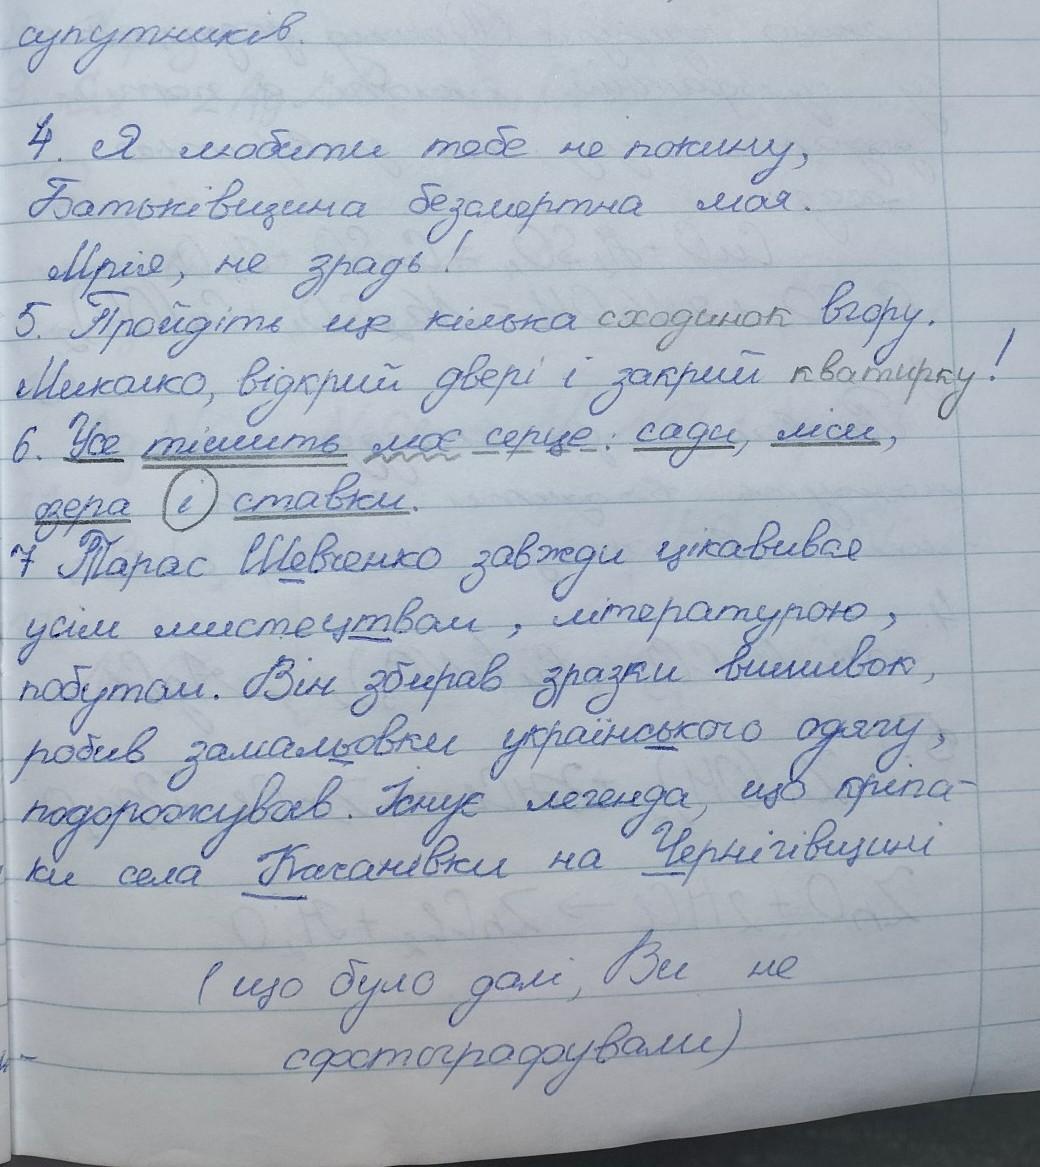 супутників.
4. Я любити тебе не покину,
Батьківщина безсмертна моя.
Мрія, не зрадь!
5. Пройдіть ще кілька сходинок вгору.
Миколко, відкрий двері і закрий кватирку!
6. Усе тішить моє серце: сади, ліси,
озера і ставки.
7 Тарас Шевченко завжди цікавився
усім мистецтвом, літературою,
побутом. Він збирав зразки вишивок,
робив замальовки українського одягу,
подорожував. Існує легенда, що кріпа-
ки села Качанівки на Чернігівщині
(що було далі, Ви не
сфотографували)